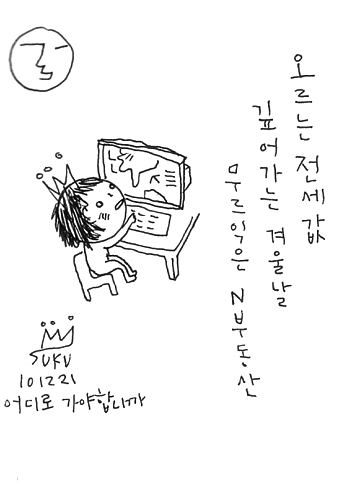 오르는 전세값
깊어가는 겨울날
무르익은 N부동산
SUKU
101221
어디로 가야합니까